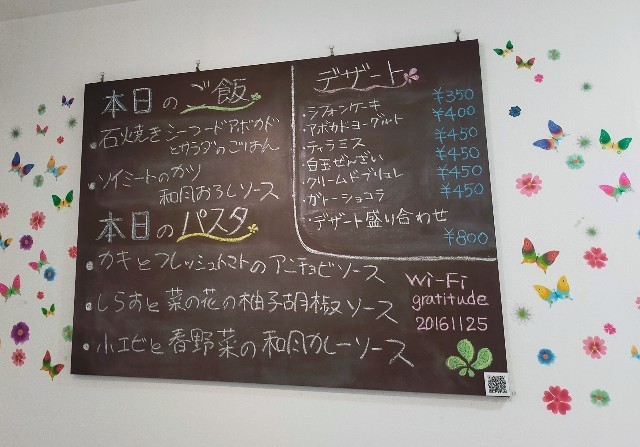 本日のご飯
・石焼きシーフードアボカド
とサラダのごはん
・ソイミートのカツ
和風おろしソース
本日のパスタ
・カキとフレッシュトマトのアンチョビソース
・しらすと菜の花の柚子胡椒ソース
・小エビと春野菜の和風カレーソース
デザート
・シフォンケーキ ¥350
・アボカドヨーグルト ¥400
・ティラミス ¥450
・白玉ぜんざい ¥450
・クリームドブリュレ ¥450
・ガトーショコラ ¥450
・デザート盛り合わせ
¥800
Wi-Fi
gratitude
20161125